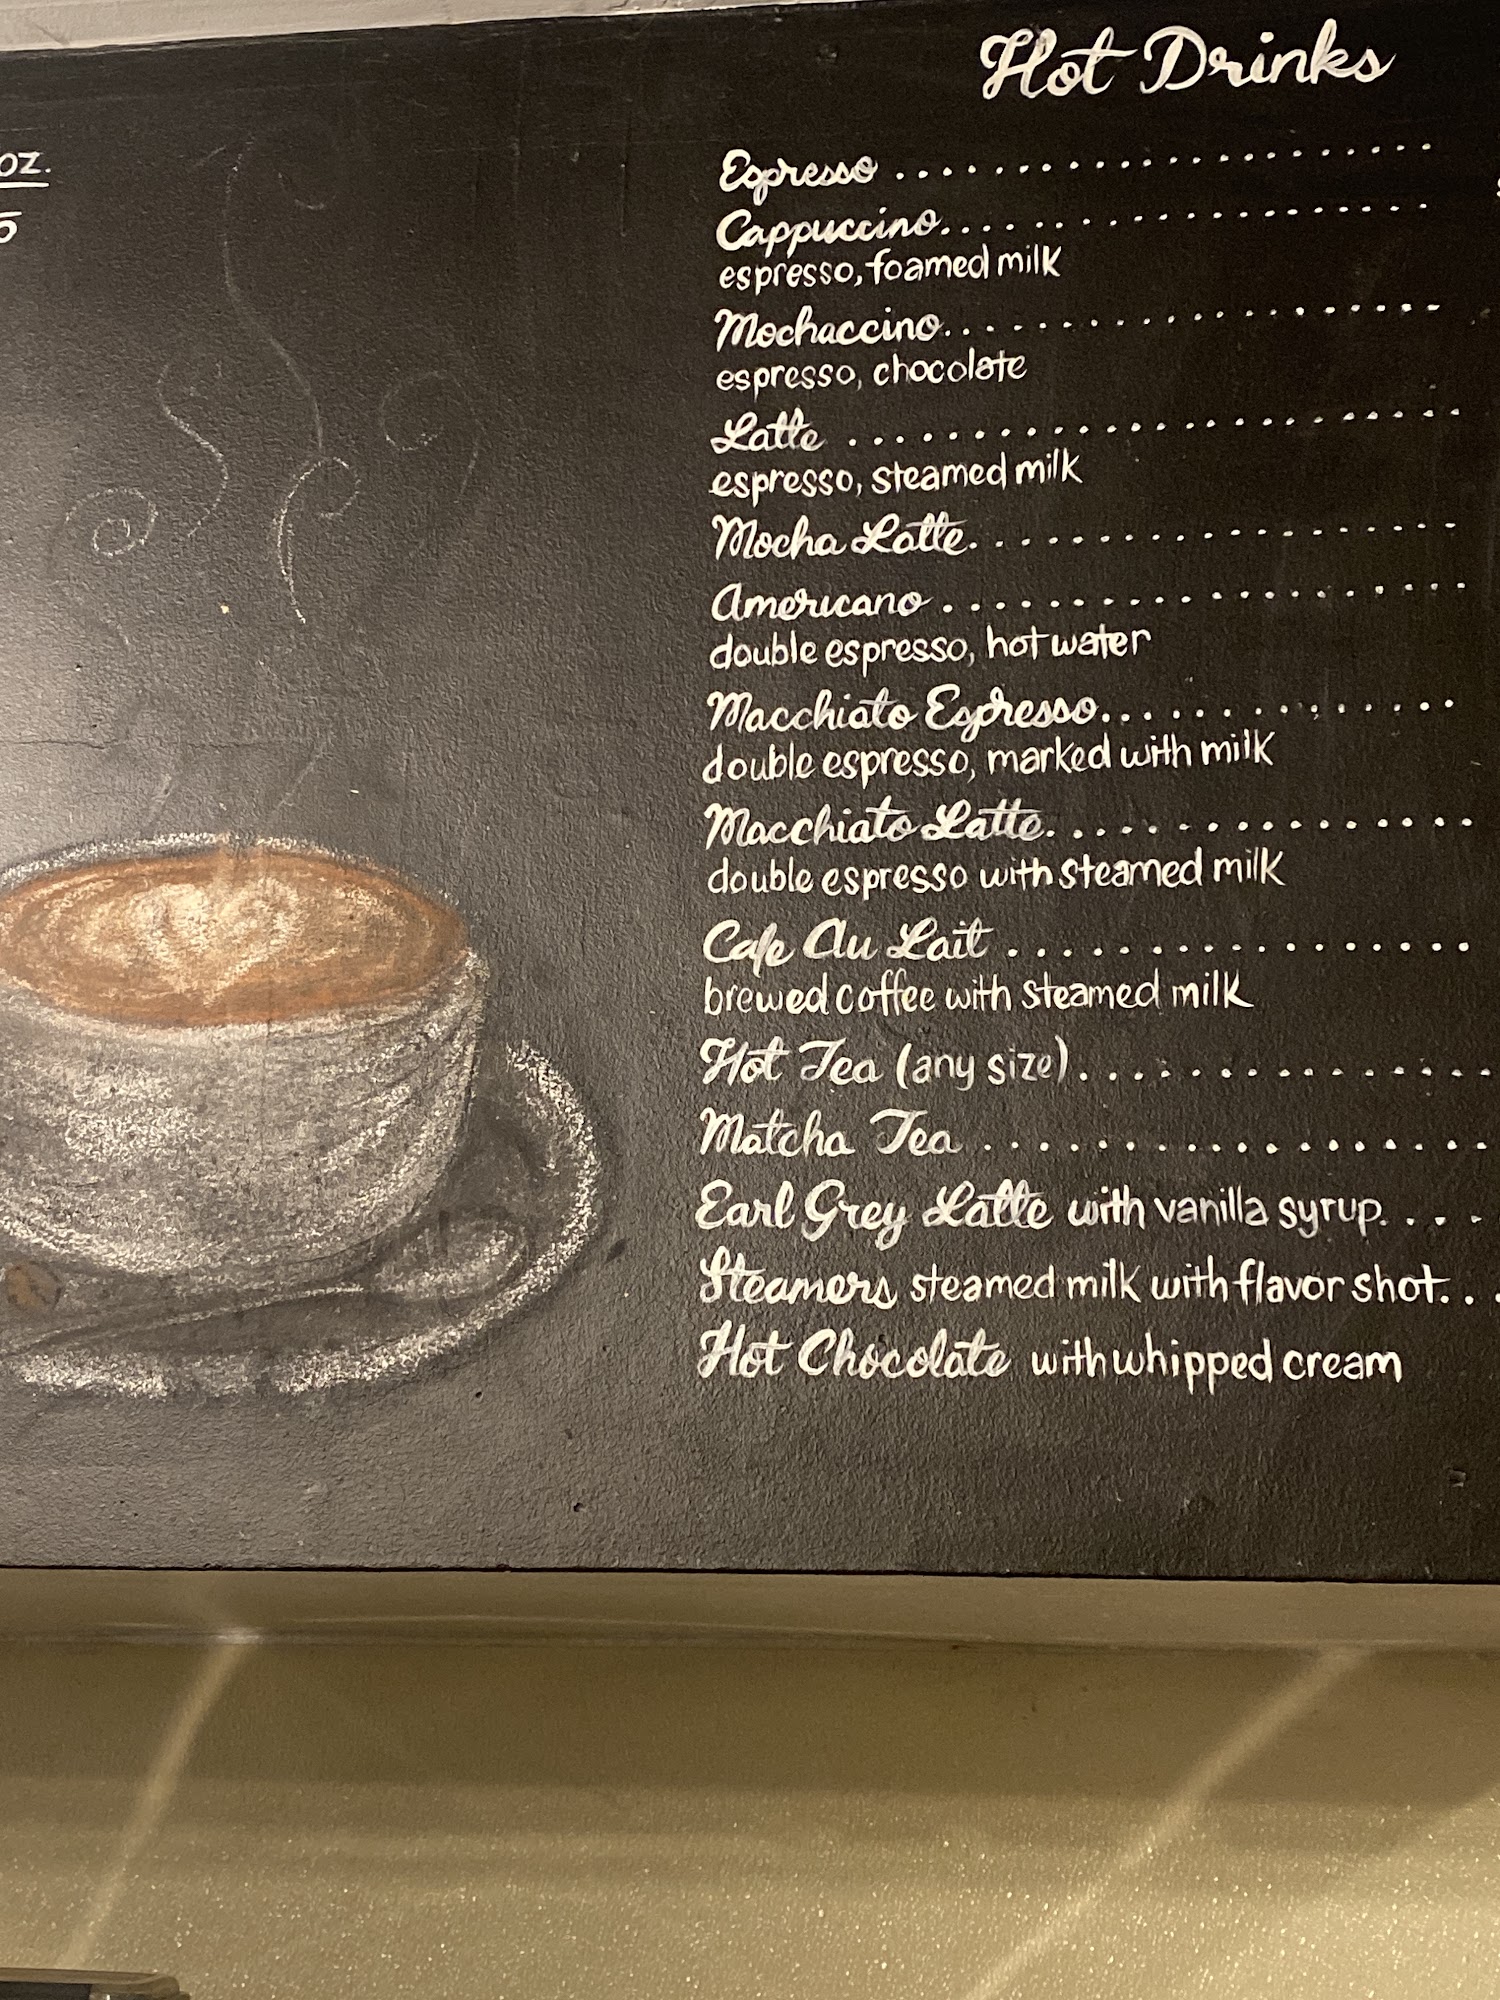 oz.
5
Hot Drinks
Espresso ......................
Cappuccino....................
espresso, foamed milk
Mochaccino....................
espresso, chocolate
Latte ........................
espresso, steamed milk
Mocha Latte....................
Americano .....................
double espresso, hot water
Macchiato Espresso..............
double espresso, marked with milk
Macchiato Latte.................
double espresso with steamed milk
Cafe Au Lait .................
brewed coffee with steamed milk
Hot Tea (any size)...............
Matcha Tea ..................
Earl Grey Latte with vanilla syrup....
Steamers steamed milk with flavor shot...
Hot Chocolate with whipped cream